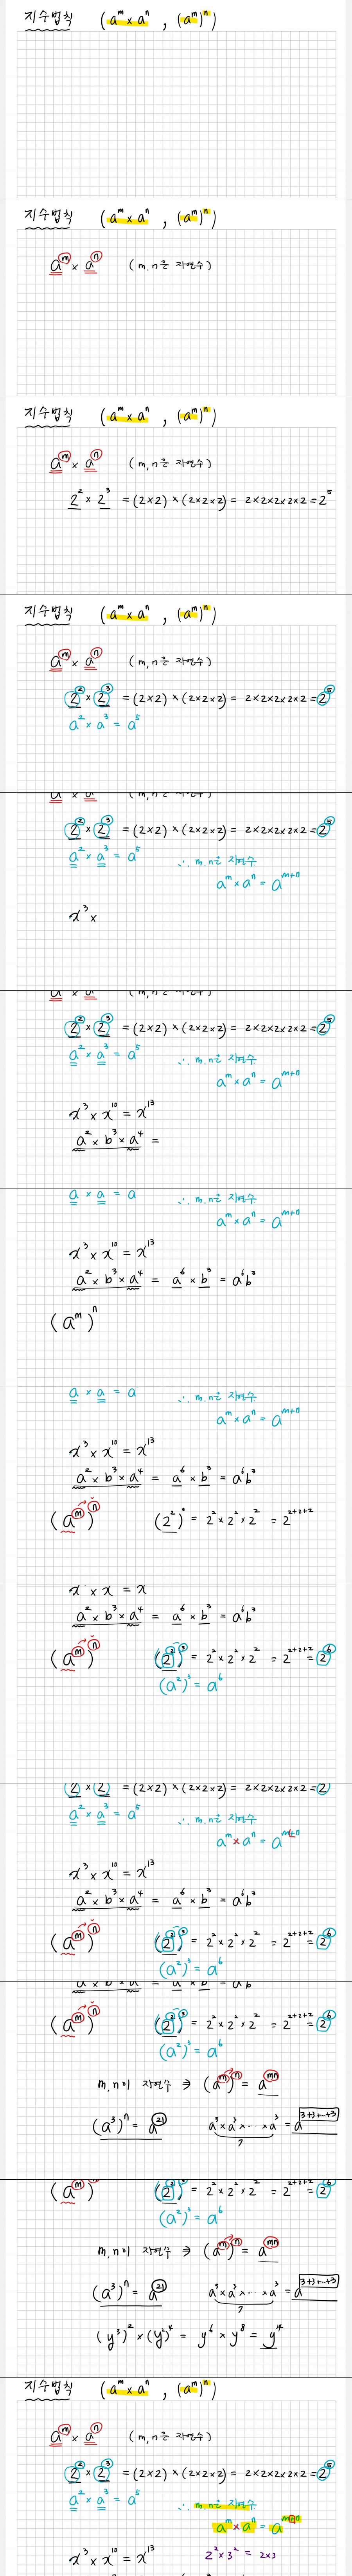 지수법칙 (a^m × a^n , (a^m)^n)
지수법칙 (a^m × a^n , (a^m)^n)
a^m × a^n (m, n은 자연수)
지수법칙 (a^m × a^n , (a^m)^n)
a^m × a^n (m, n은 자연수)
2^2 × 2^3 = (2×2) × (2×2×2) = 2×2×2×2×2 = 2^5
지수법칙 (a^m × a^n , (a^m)^n)
a^m × a^n (m, n은 자연수)
2^2 × 2^3 = (2×2) × (2×2×2) = 2×2×2×2×2 = 2^5
a^2 × a^3 = a^5
a × a (m, n은 자연수)
2^2 × 2^3 = (2×2) × (2×2×2) = 2×2×2×2×2 = 2^5
a^2 × a^3 = a^5 ∴ m, n은 자연수
a^m × a^n = a^{m+n}
x^3 ×
a × a (m, n은 자연수)
2^2 × 2^3 = (2×2) × (2×2×2) = 2×2×2×2×2 = 2^5
a^2 × a^3 = a^5 ∴ m, n은 자연수
a^m × a^n = a^{m+n}
x^3 × x^10 = x^13
a^2 × b^3 × a^4 =
a × a = a ∴ m, n은 자연수
a^m × a^n = a^{m+n}
x^3 × x^10 = x^13
a^2 × b^3 × a^4 = a^6 × b^3 = a^6b^3
(a^m)^n
a × a = a ∴ m, n은 자연수
a^m × a^n = a^{m+n}
x^3 × x^10 = x^13
a^2 × b^3 × a^4 = a^6 × b^3 = a^6b^3
(a^m)^n (2^2)^3 = 2^2 × 2^2 × 2^2 = 2^{2+2+2}
x × x = x
a^2 × b^3 × a^4 = a^6 × b^3 = a^6b^3
(a^m)^n (2^2)^3 = 2^2 × 2^2 × 2^2 = 2^{2+2+2} = 2^6
(a^2)^3 = a^6
2 × 2 = (2×2) × (2×2×2) = 2×2×2×2×2 = 2
a^2 × a^3 = a^5 ∴ m, n은 자연수
a^m × a^n = a^{m+n}
x^3 × x^10 = x^13
a^2 × b^3 × a^4 = a^6 × b^3 = a^6b^3
(a^m)^n (2^2)^3 = 2^2 × 2^2 × 2^2 = 2^{2+2+2} = 2^6
(a^2)^3 = a^6
a × b × a = a × b = a b
(a^m)^n (2^2)^3 = 2^2 × 2^2 × 2^2 = 2^{2+2+2} = 2^6
(a^2)^3 = a^6
m, n이 자연수 ⇒ (a^m)^n = a^{mn}
(a^3)^7 = a^21 a^3 × a^3 × ⋯ × a^3 = a^{3+3+⋯+3}
7
(a^m)^n (2^2)^3 = 2^2 × 2^2 × 2^2 = 2^{2+2+2} = 2^6
(a^2)^3 = a^6
m, n이 자연수 ⇒ (a^m)^n = a^{mn}
(a^3)^7 = a^21 a^3 × a^3 × ⋯ × a^3 = a^{3+3+⋯+3}
7
(y^3)^2 × (y^2)^4 = y^6 × y^8 = y^14
지수법칙 (a^m × a^n , (a^m)^n)
a^m × a^n (m, n은 자연수)
2^2 × 2^3 = (2×2) × (2×2×2) = 2×2×2×2×2 = 2^5
a^2 × a^3 = a^5 ∴ m, n은 자연수
a^m × a^n = a^{m+n}
2^2 × 3^2 = 2×3
x^3 × x^10 = x^13